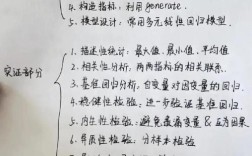 4. 构造指标:利用 generate.
5. 模型设计:常用多元线性回归模型.
实证部分
1. 描述性统计:最大值、最小值、平均值
2. 相关性分析:两两指标的相关联系.
3. 基准回归分析:自变量对因变量的回归.
4. 稳健性检验:进一步验证基准回归.
5. 内生性检验:避免遗漏变量&互为因果
6. 异质性检验:分样本检验